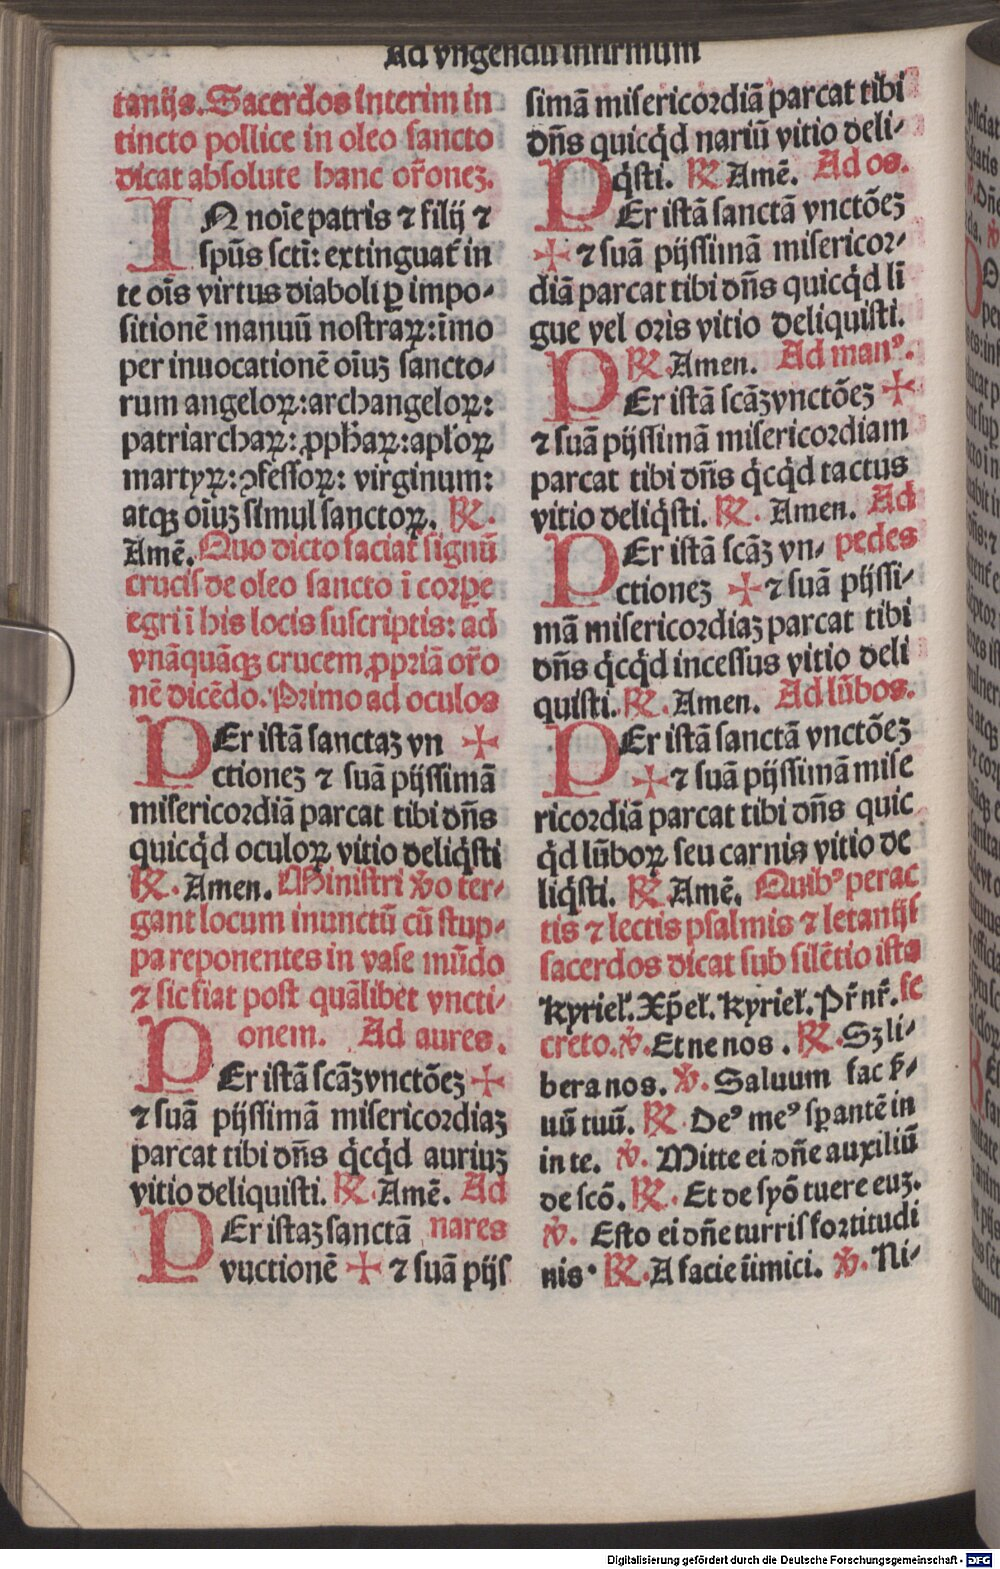 Ad vngendū infirmum
tanijs. Sacerdos interim in
tincto pollice in oleo sancto
dicat absolute hanc or̄onez.
IN noīe patris ⁊ filij ⁊
spūs sctī: extinguat̄ in
te oīs virtus diaboli ꝑ impo-
sitionē manuū nostraꝝ: īmo
per inuocationē oīuꝫ sancto-
rum angeloꝝ: archangeloꝝ:
patriarchaꝝ: ꝓphaꝝ: apl'oꝝ
martyꝝ: ꝯfessoꝝ: virginum:
atqꝫ oīuꝫ simul sanctoꝝ. ℟.
Amē. Quo dicto faciat signū
crucis de oleo sancto ī corꝑe
egri ī his locis suscriptis: ad
vnāquāqꝫ crucem ꝓpriā or̄o
nē dicēdo. Primo ad oculos
PEr istā sanctaꝫ vn ✠
ctioneꝫ ⁊ suā pijssimā
misericordiā parcat tibi dn̄s
quicq̄d oculoꝝ vitio deliq̄sti
℟. Amen. Ministri v̄o ter-
gant locum inunctū cū stup-
pa reponentes in vase mūdo
⁊ sic fiat post quālibet vncti-
onem. Ad aures.
PEr istā scāꝫ vnctōeꝫ ✠
⁊ suā pijssimā misericordiaꝫ
parcat tibi dn̄s q̄cq̄d auriuꝫ
vitio deliquisti. ℟. Amē. Ad
PEr istaꝫ sanctā nares
vuctionē ✠ ⁊ suā pijs
simā misericordiā parcat tibi
dn̄s quicq̄d nariū vitio deli-
q̄sti. ℟ Amē. Ad os.
PEr istā sanctā vnctōeꝫ
✠ ⁊ suā pijssimā misericor-
diā parcat tibi dn̄s quicq̄d lī
gue vel oris vitio deliquisti.
℟. Amen. Ad manꝰ.
PEr istā scāꝫ vnctōeꝫ ✠
⁊ suā pijssimā misericordiam
parcat tibi dn̄s q̄cq̄d tactus
vitio deliq̄sti. ℟. Amen. Ad
PEr istā scāꝫ vn- pedes
ctioneꝫ ✠ ⁊ suā pijssi-
mā misericordiaꝫ parcat tibi
dn̄s q̄cq̄d incessus vitio deli
quisti. ℟. Amen. Ad lūbos.
PEr istā sanctā vnctōeꝫ
✠ ⁊ suā pijssimā mise
ricordiā parcat tibi dn̄s quic
q̄d lūboꝝ seu carnis vitio de
liq̄sti. ℟ Amē. Quibꝰ perac
tis ⁊ lectis psalmis ⁊ letanijs
sacerdos dicat sub silētio ista
Kyriel'. Xp̄el'. Kyriel'. Pr̄ nr̄. se
creto. ℣. Et ne nos. ℟. Sꝫ li-
bera nos. ℣. Saluum fac ẜ-
uū tuū. ℟. Deꝰ meꝰ sꝑantē in
in te. ℣. Mitte ei dn̄e auxiliū
de scō. ℟. Et de syō tuere euꝫ.
℣. Esto ei dn̄e turris fortitudi
nis. ℟. A facie īimici. ℣. Ni-
Digitalisierung gefördert durch die Deutsche Forschungsgemeinschaft - DFG